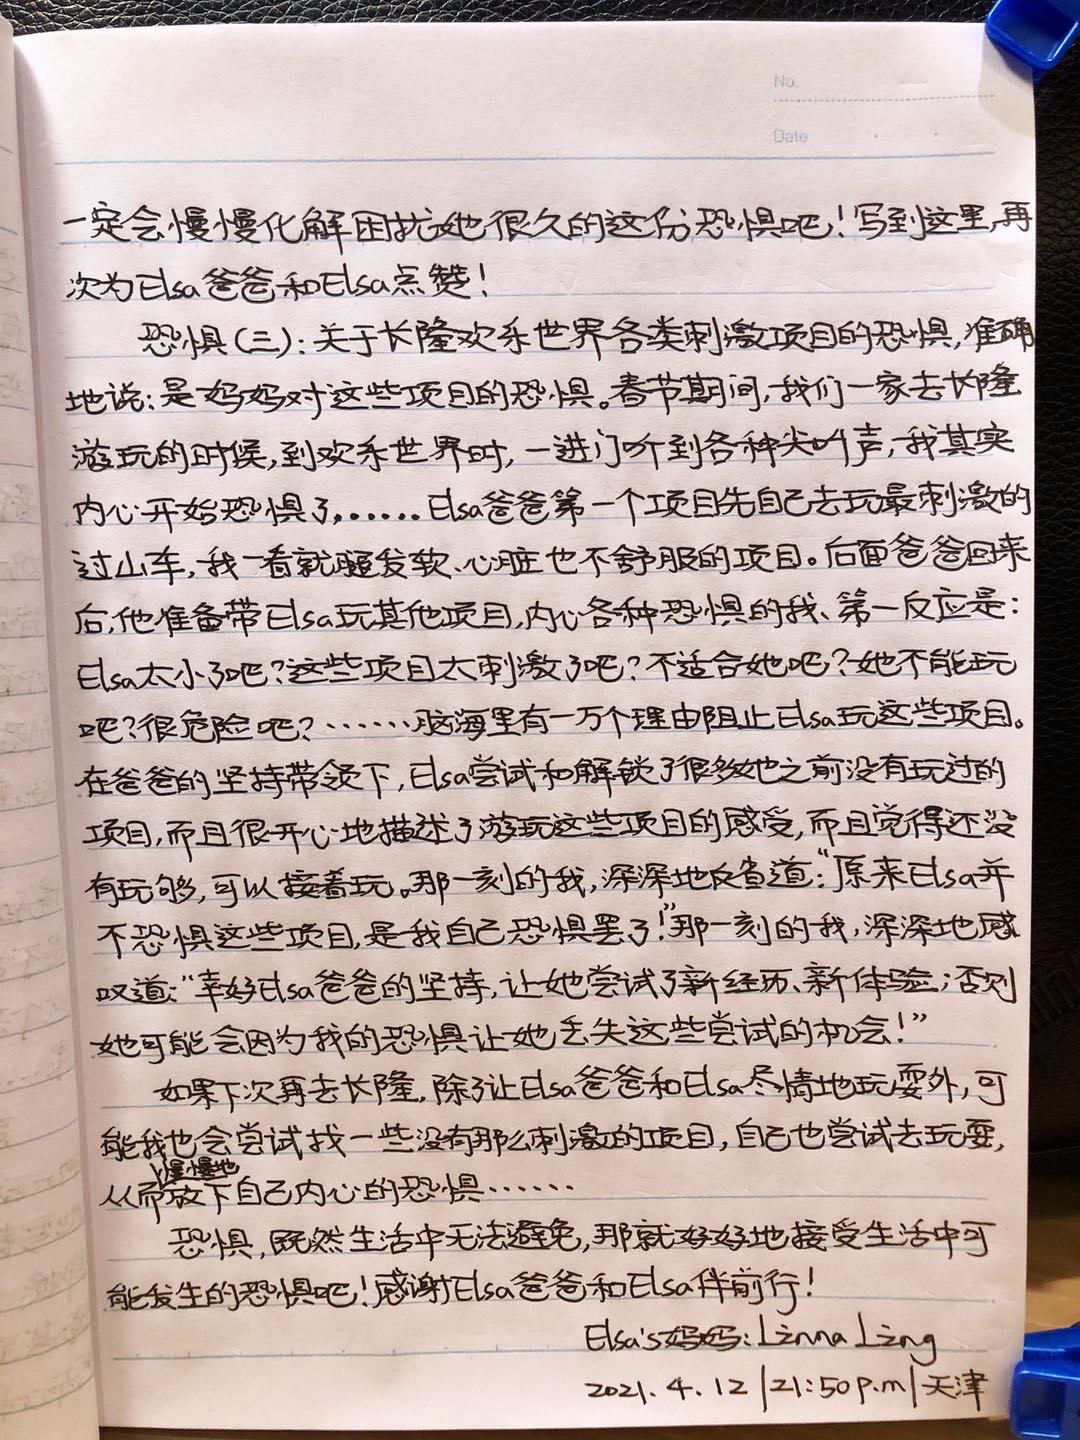 No.
Date
一定会慢慢化解困扰她很久的这份恐惧吧！写到这里，再
次为Elsa爸爸和Elsa点赞！
恐惧（三）：关于长隆欢乐世界各类刺激项目的恐惧，准确
地说：是妈妈对这些项目的恐惧。春节期间，我们一家去长隆
游玩的时候，到欢乐世界时，一进门听到各种尖叫声，我其实
内心开始恐惧了，……Elsa爸爸第一个项目先自己去玩最刺激的
过山车，我一看就腿发软、心脏也不舒服的项目。后面爸爸回来
后，他准备带Elsa玩其他项目，内心各种恐惧的我、第一反应是：
Elsa太小了吧？这些项目太刺激了吧？不适合她吧？她不能玩
吧？很危险吧？……脑海里有一万个理由阻止Elsa玩这些项目。
在爸爸的坚持带领下，Elsa尝试和解锁了很多她之前没有玩过的
项目，而且很开心地描述了游玩这些项目的感受，而且觉得还没
有玩够，可以接着玩。那一刻的我，深深地反省道：“原来Elsa并
不恐惧这些项目，是我自己恐惧罢了！”那一刻的我，深深地感
叹道：“幸好Elsa爸爸的坚持，让她尝试了新经历、新体验；否则
她可能会因为我的恐惧让她丢失这些尝试的机会！”
如果下次再去长隆，除了让Elsa爸爸和Elsa尽情地玩耍外，可
能我也会尝试找一些没有那么刺激的项目，自己也尝试去玩耍，
从而慢慢地放下自己内心的恐惧……
恐惧，既然生活中无法避免，那就好好地接受生活中可
能发生的恐惧吧！感谢Elsa爸爸和Elsa伴前行！
Elsa's妈妈：Linna Ling
2021.4.12|21:50p.m|天津